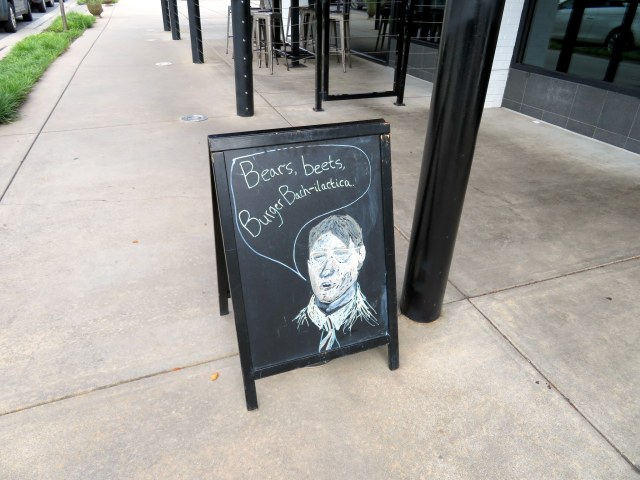 Bears, beets,
Burger Bach-ilactica.